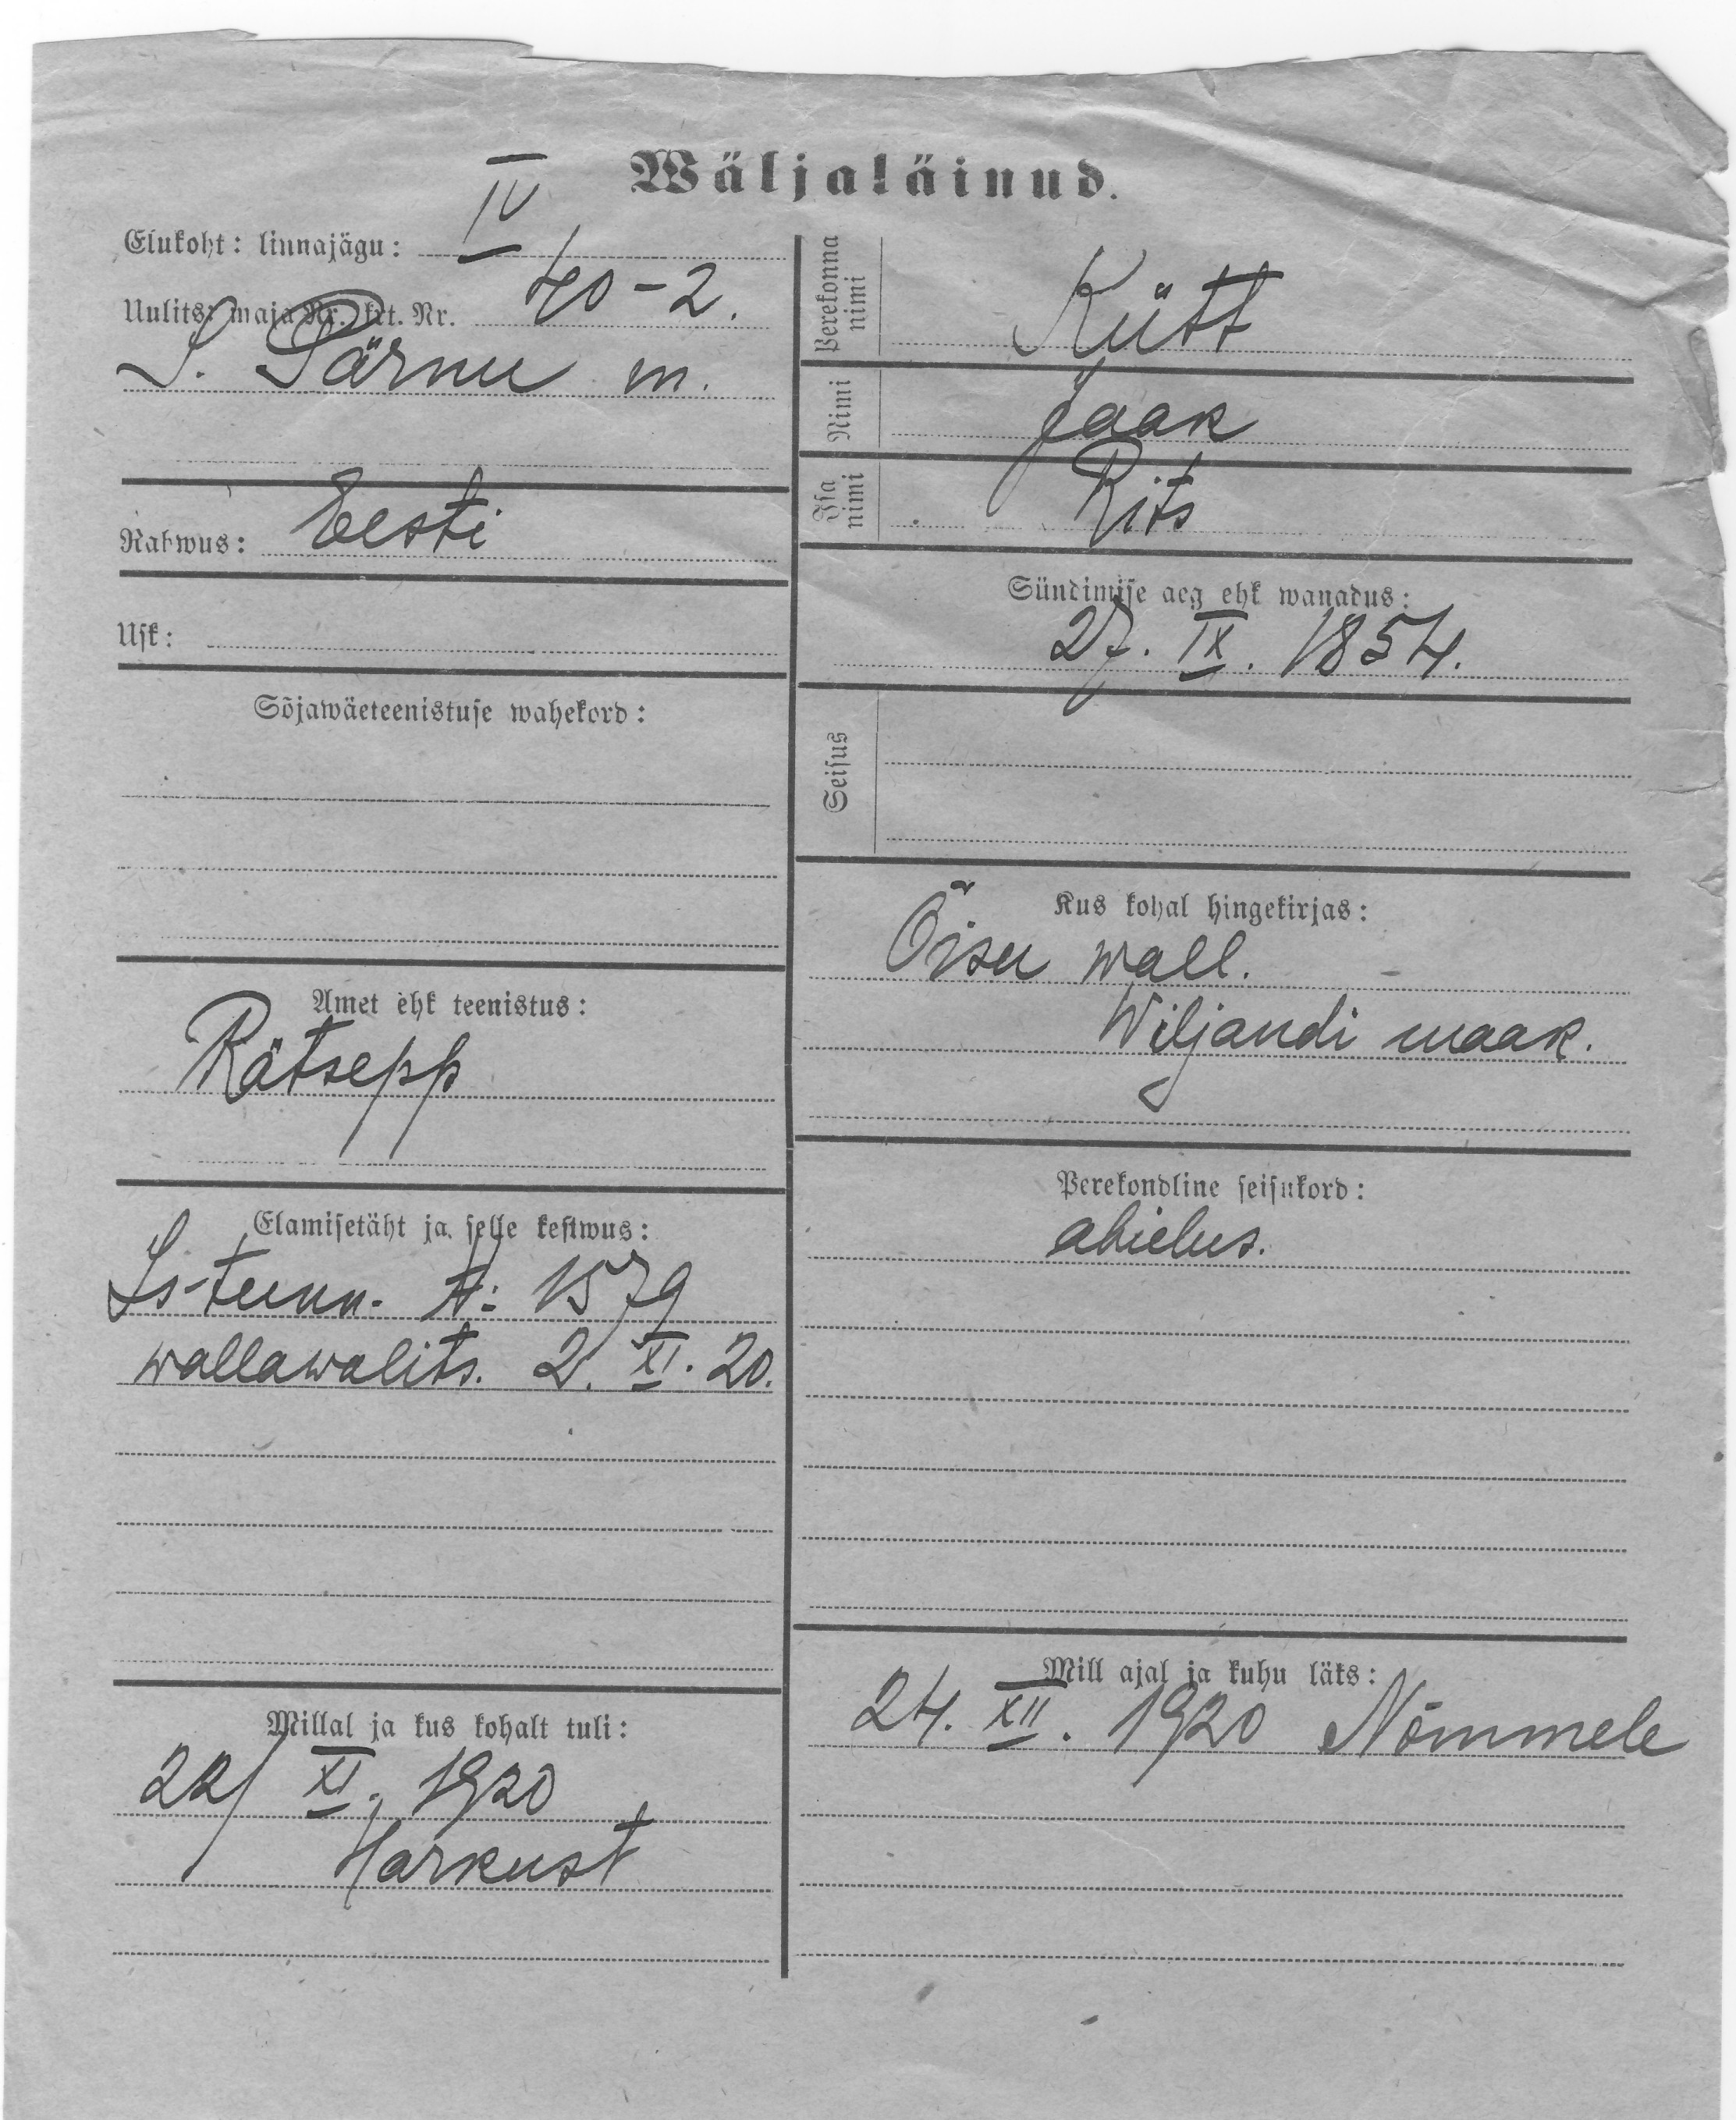 Wäljaläinud.
Elukoht: linnajägu: IV
Uulits: maja Nr. krt. Nr. 40-2.
S. Pärnu m.
Rahwus: Eesti
Usk:
Sõjawäeteenistuse wahekord:
Amet ehk teenistus:
Rätsepp
Elamisetäht ja selle kestwus:
Is-tunn. №: 1579
wallawalits. 2. XI. 20.
Millal ja kus kohalt tuli:
22/XI. 1920
Harkust
Perekonna nimi
Kütt
Nimi
Jaak
Isa nimi
Rits
Sündimise aeg ehk wanadus:
27. IX. 1854.
Seisus
Kus kohal hingekirjas:
Õisu wall.
Wiljandi maak.
Perekondline seisukord:
abielus.
Mill ajal ja kuhu läks:
24. XII. 1920 Nõmmele